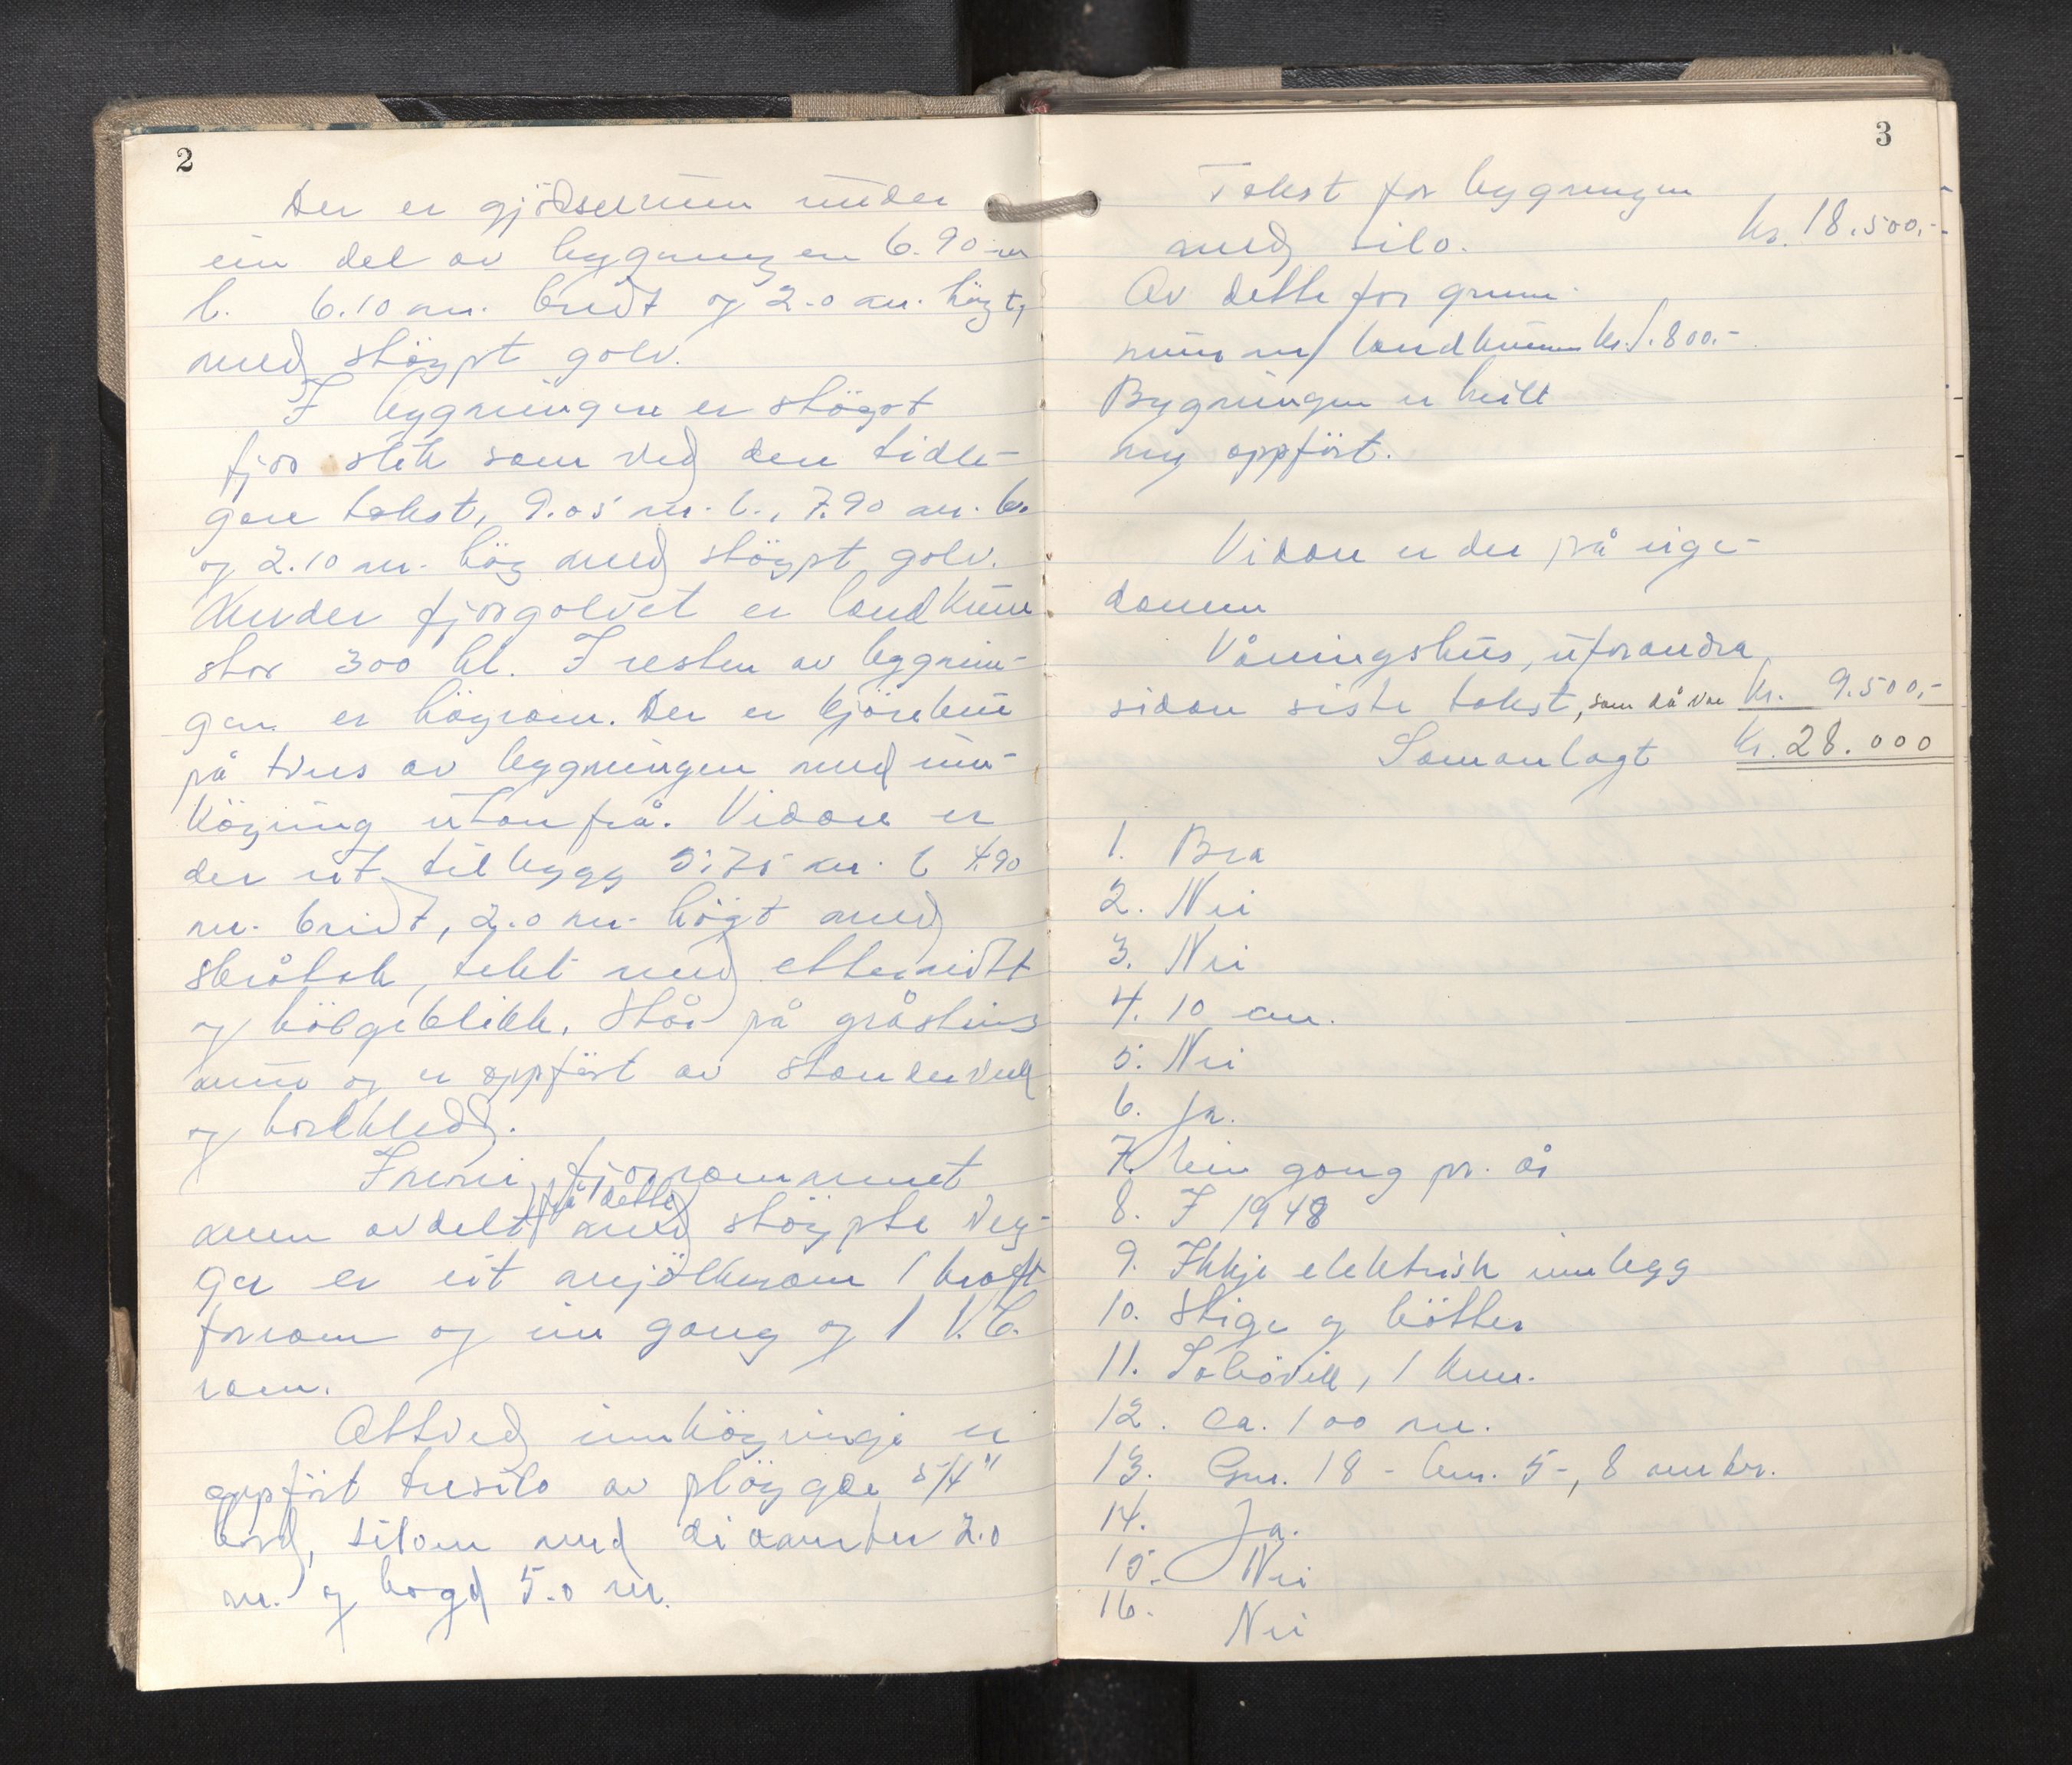 2
Der er gjødselrum under
ein del av bygningen 6.90 m
l. 6.10 m. bredt og 2.0 m. høgt,
med støypt golv.
I bygningen er støypt
fjos slik som ved den tidle-
gare takst, 9.05 m. l., 7.90 m. b.
og 2.10 m. høg med støypt golv.
Under fjosgolvet er landkum
stor 300 hl. I resten av bygnin-
gen er høyrom. Der er kjørebru
på tvers av bygningen med inn-
køyring utanfrå. Vidare er
der eit tilbygg 5.75 m. l 4.90
m. breidt, 2.0 m. høgt med
skråtak, tekt med etternitt
og bølgeblikk. Står på gråsteins
mur og er oppført av standerverk
og bordkledd.
Inni fjosrommet
men avdelt frå dette med støypte veg-
ger er eit mjølkerom 1 kraft
forrom og ein gang og 1 V.C.
rom.
Attved innkøyringi er
oppført tresilo av pløygde 5/4"
bord, siloen med diameter 2.0
m. og høgd 5.0 m.
3
Takst for bygningen
med silo. kr. 18.500,-
Av dette for grunn-
mur m/ landkum kr. 1.800.-
Bygningen er heilt
ny oppført.
Vidare er der på eige-
domen
Våningshus, uforandra
sidan siste takst, som då var kr. 9.500,-
Samanlagt kr. 28.000
1. Bra
2. Nei
3. Nei
4. 10 m.
5. Nei
6. Ja.
7. Ein gong pr. år
8. I 1948
9. Ikkje elektrisk innlegg
10. Stige og bøtter
11. 1 km.
12. Ca. 100 m.
13. Gnr. 18 - bnr. 5-, 8 mrkr.
14. Ja.
15. Nei
16. Nei